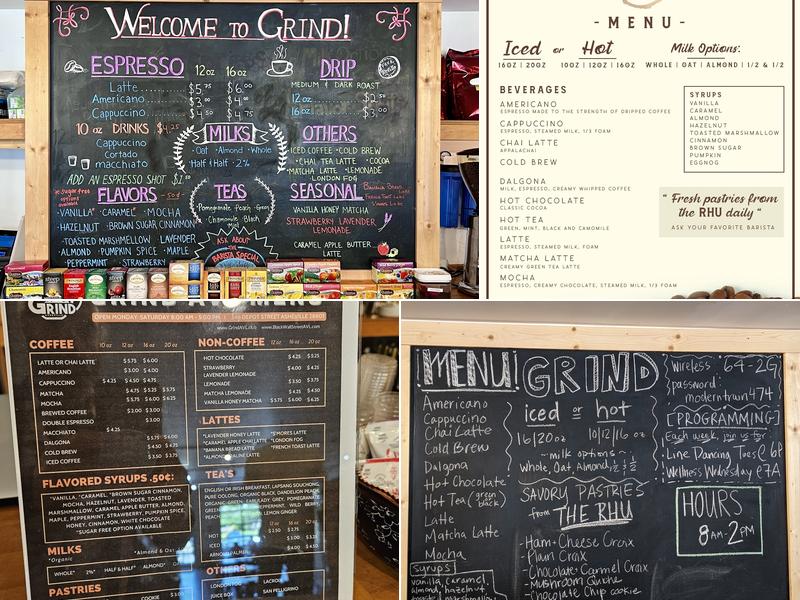 WELCOME TO GRIND!
ESPRESSO 12oz 16oz
Latte $5.75 $6.00
Americano $3 $4
Cappuccino $4.50 $4.75
10 oz DRINKS $4.25
Cappuccino
Cortado
macchiato
ADD AN ESPRESSO SHOT $1
FLAVORS .50¢
*sugar free options available
VANILLA* CARAMEL* MOCHA
HAZELNUT BROWN SUGAR CINNAMON
TOASTED MARSHMELLOW LAVENDER
ALMOND PUMPKIN SPICE MAPLE
PEPPERMINT STRAWBERRY
MILKS
Oat Almond Whole
Half & Half 2%
TEAS
Pomegranate Peach Green
Chamomile Black
ASK ABOUT
THE
BARISTA SPECIAL
DRIP
MEDIUM & DARK ROAST
12oz $2.50
16oz $3.00
OTHERS
ICED COFFEE COLD BREW
CHAI TEA LATTE COCOA
MATCHA LATTE LEMONADE
LONDON FOG
SEASONAL
VANILLA HONEY MATCHA
STRAWBERRY LAVENDER
LEMONADE
CARAMEL APPLE BUTTER
LATTE
- MENU -
Iced or Hot
16OZ | 20OZ 10OZ | 12OZ | 16OZ
Milk Options:
WHOLE | OAT | ALMOND | 1/2 & 1/2
BEVERAGES
AMERICANO
ESPRESSO MADE TO THE STRENGTH OF DRIPPED COFFEE
CAPPUCCINO
ESPRESSO, STEAMED MILK, 1/3 FOAM
CHAI LATTE
APPALACHAI
COLD BREW
DALGONA
MILK, ESPRESSO, CREAMY WHIPPED COFFEE
HOT CHOCOLATE
CLASSIC COCOA
HOT TEA
GREEN, MINT, BLACK AND CAMOMILE
LATTE
ESPRESSO, STEAMED MILK, FOAM
MATCHA LATTE
CREAMY GREEN TEA LATTE
MOCHA
ESPRESSO, CREAMY CHOCOLATE, STEAMED MILK, 1/3 FOAM
SYRUPS
VANILLA
CARAMEL
ALMOND
HAZELNUT
TOASTED MARSHMALLOW
CINNAMON
BROWN SUGAR
PUMPKIN
EGGNOG
" Fresh pastries from
the RHU daily "
ASK YOUR FAVORITE BARISTA
GRIND
OPEN MONDAY-SATURDAY 8:00 AM - 5:00 PM | DEPOT STREET ASHEVILLE 28801
www.GrindAVL.com www.BlackWallStreetAVL.com
COFFEE 10 oz 12 oz 16 oz
LATTE OR CHAI LATTE $5.75 $6.00
AMERICANO $3.00 $4.00
CAPPUCCINO $4.25 $4.50 $4.75
MATCHA $4.75 $5.25 $5.75
MOCHA $5.75 $6.00 $6.25
BREWED COFFEE $2.00 $3.00
DOUBLE ESPRESSO $3.00
MACCHIATO $4.25
DALGONA $5.75 $6.00
COLD BREW $4.50 $4.25
ICED COFFEE $3.50 $3.75
FLAVORED SYRUPS .50¢:
*VANILLA, *CARAMEL, *BROWN SUGAR CINNAMON,
MOCHA, HAZELNUT, LAVENDER, TOASTED
MARSHMALLOW, CARAMEL APPLE BUTTER, ALMOND,
MAPLE, PEPPERMINT, STRAWBERRY, PUMPKIN SPICE,
HONEY, CINNAMON, WHITE CHOCOLATE
*SUGAR FREE OPTION AVAILABLE
MILKS
*Organic *Almond & Oat
WHOLE* 2%* HALF & HALF* ALMOND*
PASTRIES
NON-COFFEE 12 oz 16 oz
HOT CHOCOLATE $4.25 $5.25
STRAWBERRY
LAVENDER LEMONADE $4.00 $5.00
LEMONADE $3.50
MATCHA LEMONADE $4.75
VANILLA HONEY MATCHA $5.75
LATTES
*LAVENDER HONEY LATTE *S'MORES LATTE
*CARAMEL APPLE CHAI LATTE *LONDON FOG
*BANANA BREAD LATTE *FRENCH TOAST LATTE
TEA'S
ENGLISH OR IRISH BREAKFAST, LAPSANG SOUCHONG,
PURE OOLONG, ORGANIC BLACK, DANDELION PEACH,
12 oz 16 oz 20 oz
HOT
ICED
ARNOLD PALMER
OTHERS
LONDON FOG LACROIX
JUICE BOX SAN PELLIGRINO
MENU! GRIND
Americano
Cappuccino
Chai Latte
Cold Brew
Dalgona
Hot Chocolate
Hot Tea (green black)
Latte
Matcha Latte
Mocha
Syrups
vanilla, caramel,
almond, hazelnut
iced or hot
16|20oz 10/12/16 oz
~milk options~
Whole, Oat, Almond, 1/2 & 1/2
SAVORY PASTRIES
from THE RHU
- Ham + Cheese Croix
- Plain Croix
- Chocolate + Carmel Croix
- Mushroom Quiche
- Chocolate Chip Cookie
Wireless: 64-2G
password:
moderntrain474
[PROGRAMMING]
Each week, join us for
Line Dancing Tues @ 6P
Wellness Wednesday @ 7A
HOURS
8AM-2PM